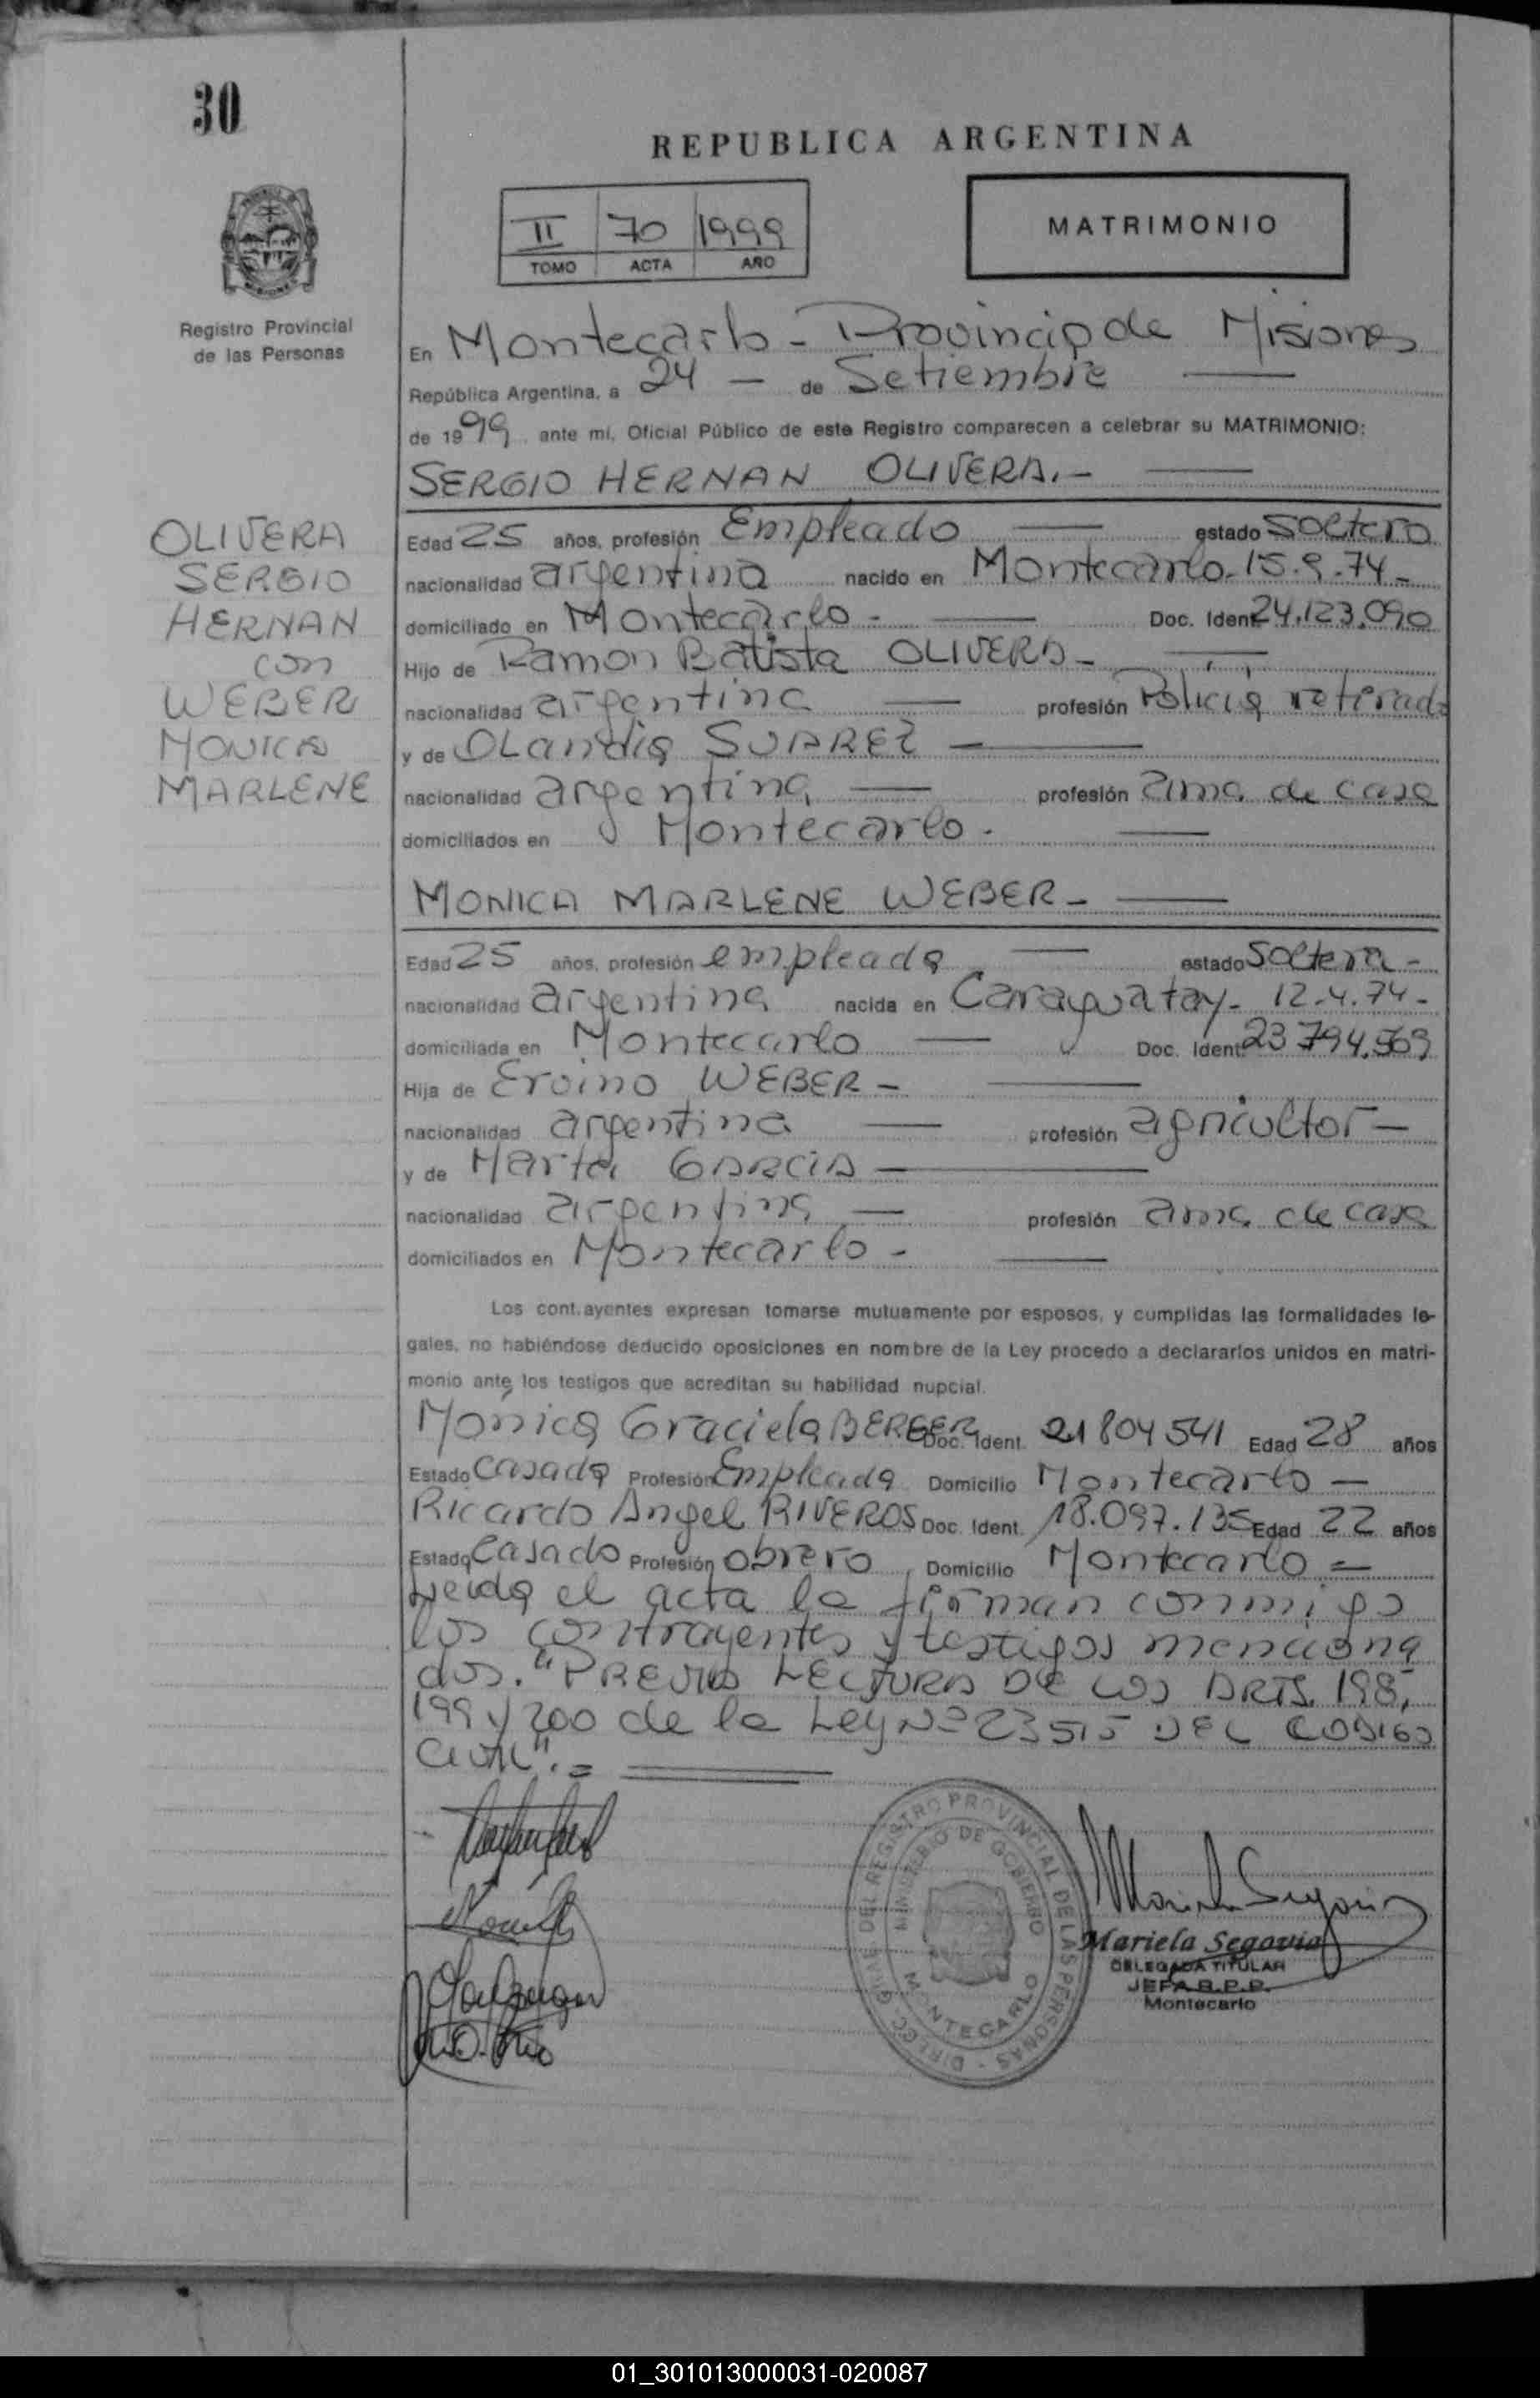 30
REPUBLICA ARGENTINA
II 70 1999
TOMO ACTA AÑO
MATRIMONIO
Registro Provincial
de las Personas
En Montecarlo - Provincia de Misiones
República Argentina, a 24 — de Setiembre —
de 1999 ante mí, Oficial Público de este Registro comparecen a celebrar su MATRIMONIO:
SERGIO HERNAN OLIVERA.- —
OLIVERA
SERGIO
HERNAN
con
WEBER
MONICA
MARLENE
Edad 25 años, profesión Empleado — estado soltero
nacionalidad argentina nacido en Montecarlo-15.9.74-
domiciliado en Montecarlo - — Doc. Ident. 24.123.090
Hijo de Ramon Batista OLIVERA - —
nacionalidad argentina — profesión Policia retirado
y de OLandia SUAREZ - —
nacionalidad argentina — profesión ama de casa
domiciliados en Montecarlo - —
MONICA MARLENE WEBER - —
Edad 25 años, profesión empleada — estado soltera -
nacionalidad argentina nacida en Caraguatay- 12-4.74-
domiciliada en Montecarlo — Doc. Ident. 23 794.569
Hija de Ervino WEBER - —
nacionalidad argentina — profesión agricultor —
y de Marta GARCIA —
nacionalidad argentina — profesión ama de casa
domiciliados en Montecarlo - —
Los cont.ayentes expresan tomarse mutuamente por esposos, y cumplidas las formalidades le-
gales, no habiéndose deducido oposiciones en nombre de la Ley procedo a declararlos unidos en matri-
monio ante los testigos que acreditan su habilidad nupcial.
Mónica Graciela BERGER Doc. Ident. 21 804 541 Edad 28 años
Estado Casada Profesión Empleada Domicilio Montecarlo —
Ricardo Angel RIVEROS Doc. Ident. 18.097.135 Edad 22 años
Estado Casado Profesión obrero Domicilio Montecarlo =
Leida el acta la firman conmigo
los contrayentes y testigos menciona
dos. "PREVIA LECTURA DE LOS ARTS. 198,
199 y 200 de la Ley Nº 23515 DEL CODIGO
CIVIL".=
DIRECC. GRAL. DEL REGISTRO PROVINCIAL DE LAS PERSONAS -
MINISTERIO DE GOBIERNO
MONTECARLO
Mariela Segovia
Mariela Segovia
DELEGADA TITULAR
JEFA R.P.P.
Montecarlo
01_301013000031-020087